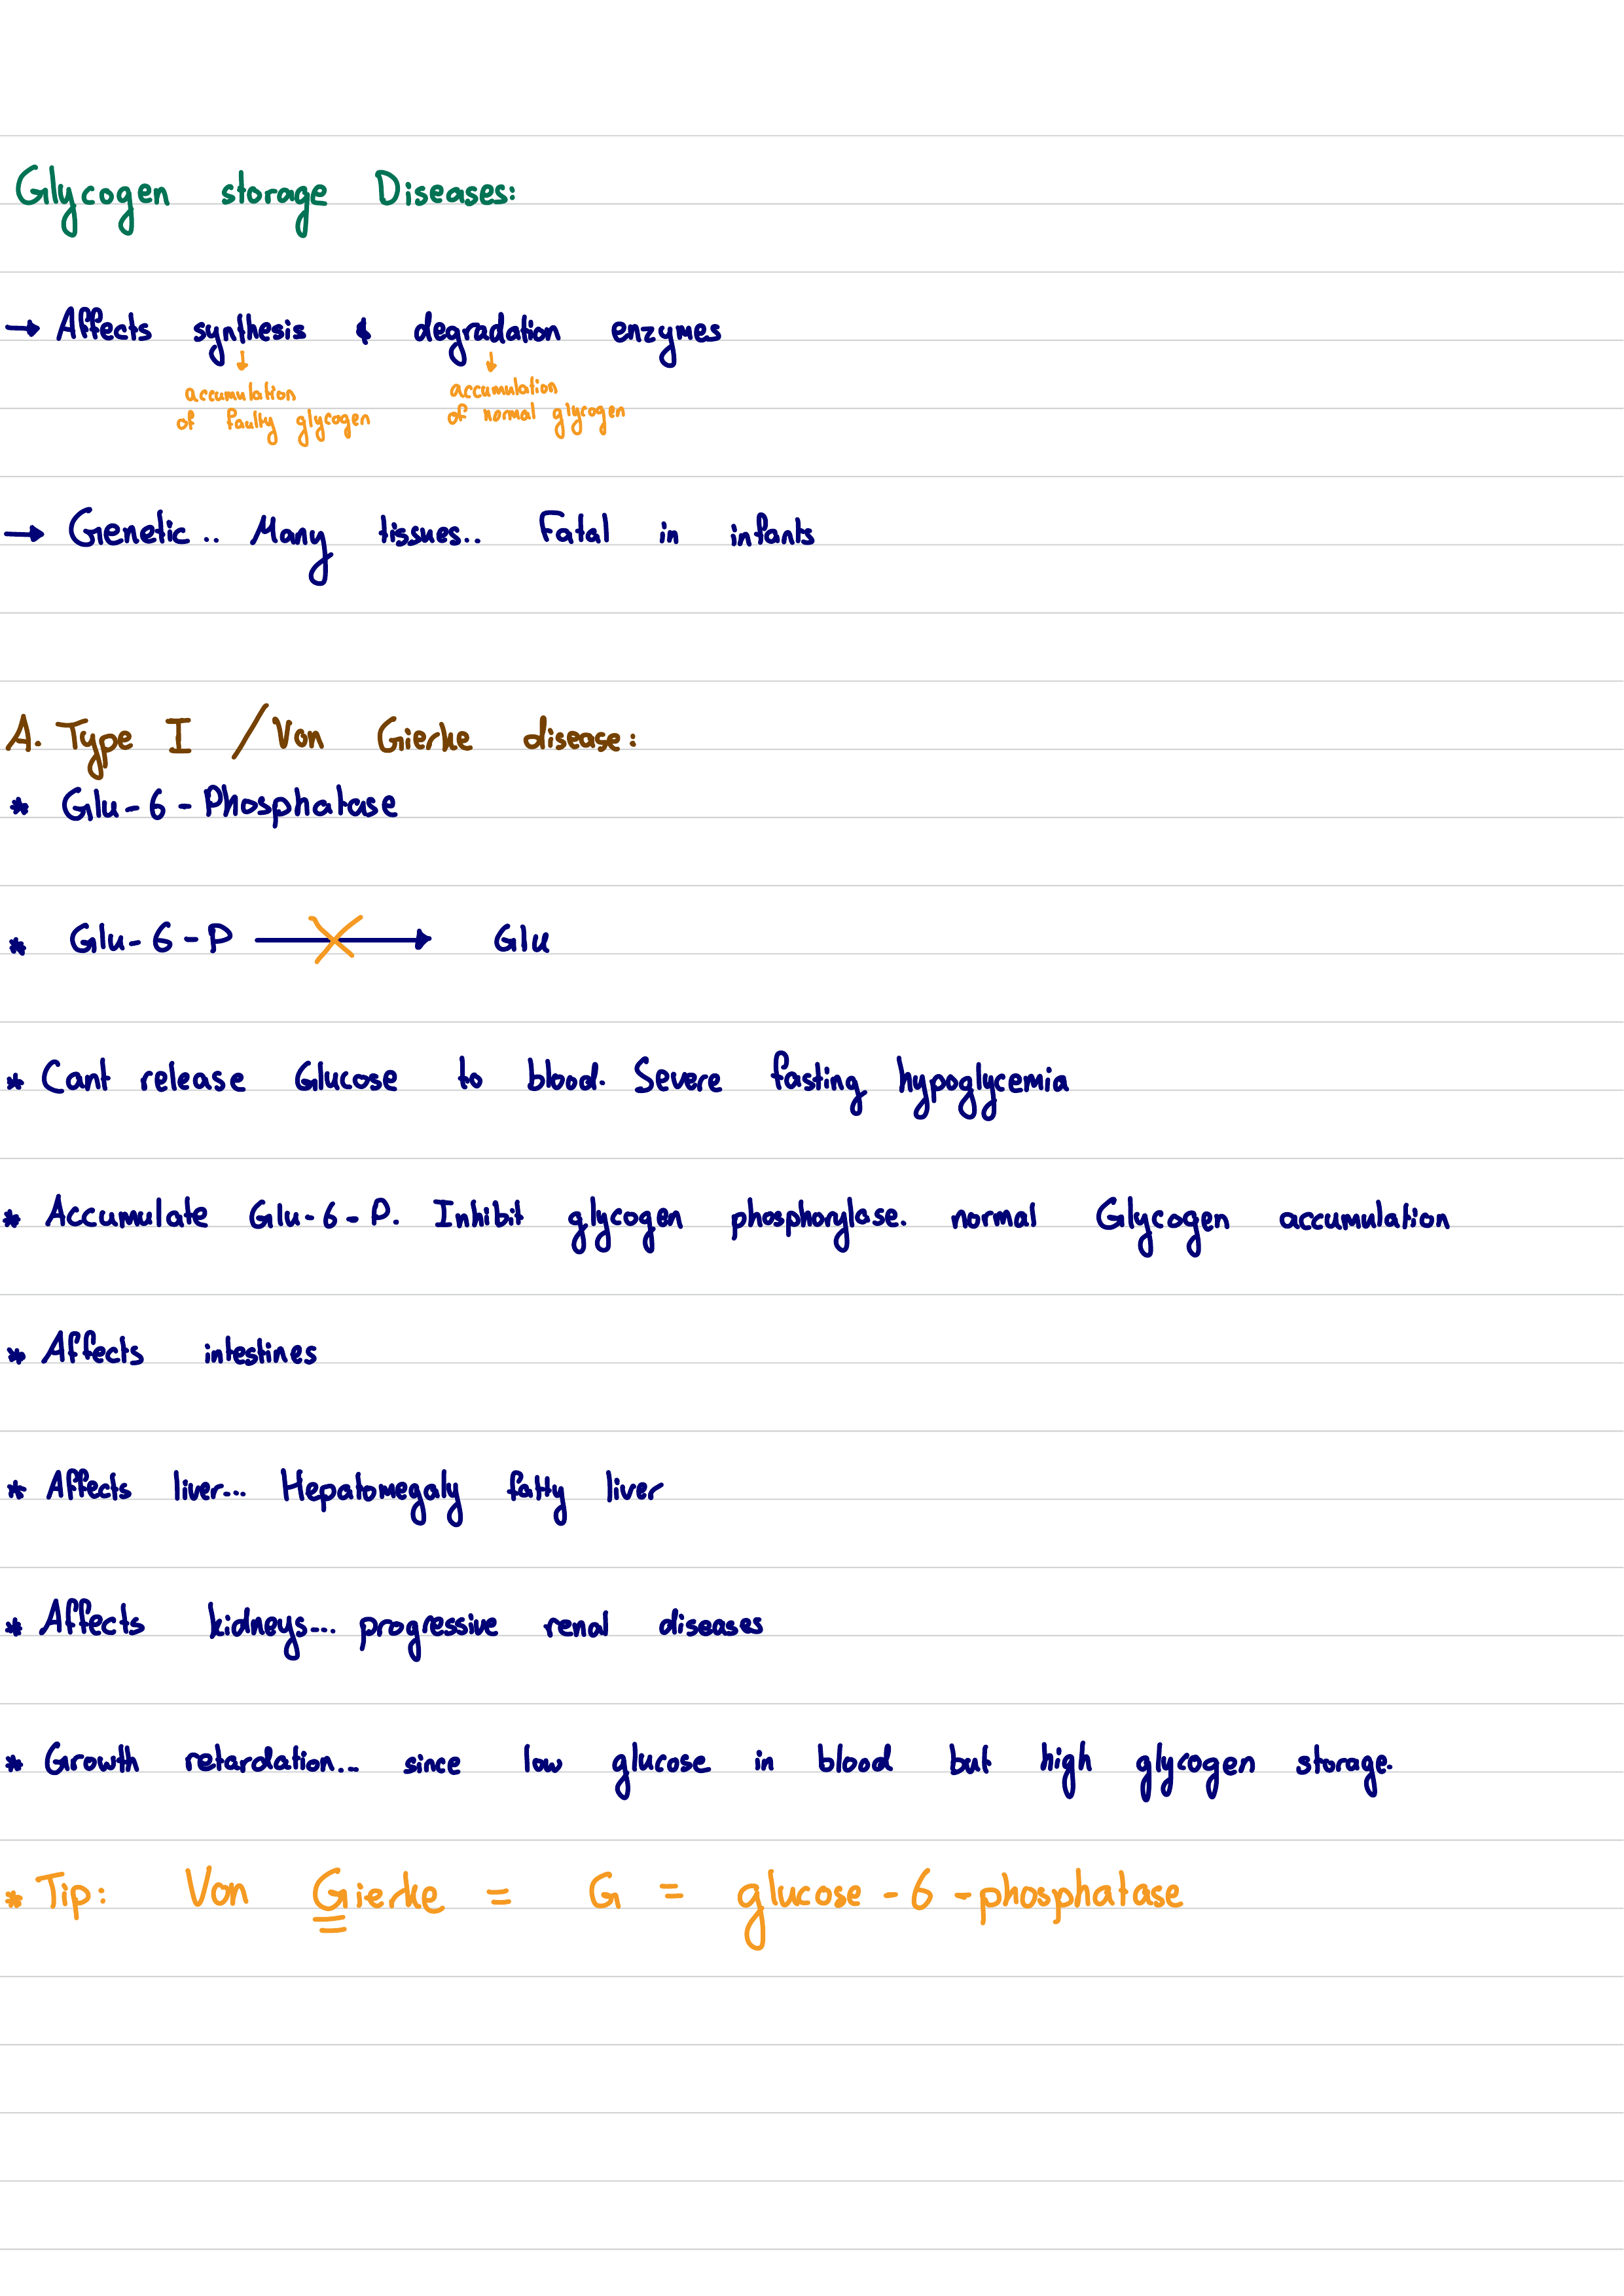 Glycogen storage Diseases:
→ Affects synthesis & degradation enzymes
↓ ↓
accumulation accumulation
of faulty glycogen of normal glycogen
→ Genetic.. Many tissues.. Fatal in infants
A. Type I / Von Gierke disease:
* Glu-6-Phosphatase
* Glu-6-P → Glu
* Cant release Glucose to blood. Severe fasting hypoglycemia
* Accumulate Glu-6-P. Inhibit glycogen phosphorylase. normal Glycogen accumulation
* Affects intestines
* Affects liver... Hepatomegaly fatty liver
* Affects kidneys... progressive renal diseases
* Growth retardation... since low glucose in blood but high glycogen storage.
* Tip: Von Gierke = G = glucose-6-phosphatase